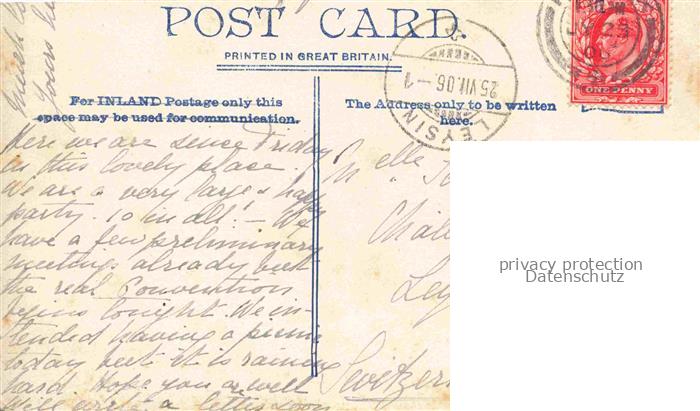 POST CARD.
PRINTED IN GREAT BRITAIN.
For INLAND Postage only this
space may be used for communication.
The Address only to be written
here.
LEYSIN
25.VII.06.-1
ONE PENNY
Much
Yours
Here we are since Friday
in this lovely place.
We are a very large & happy
party. 10 in all! - We
have a few preliminary
meetings already but
the real Convention
begins tonight. We in-
tended having a picnic
today but it is raining
hard. Hope you are well
Will write a letter soon
Melle
Chal
Ley
Switzer
privacy protection
Datenschutz